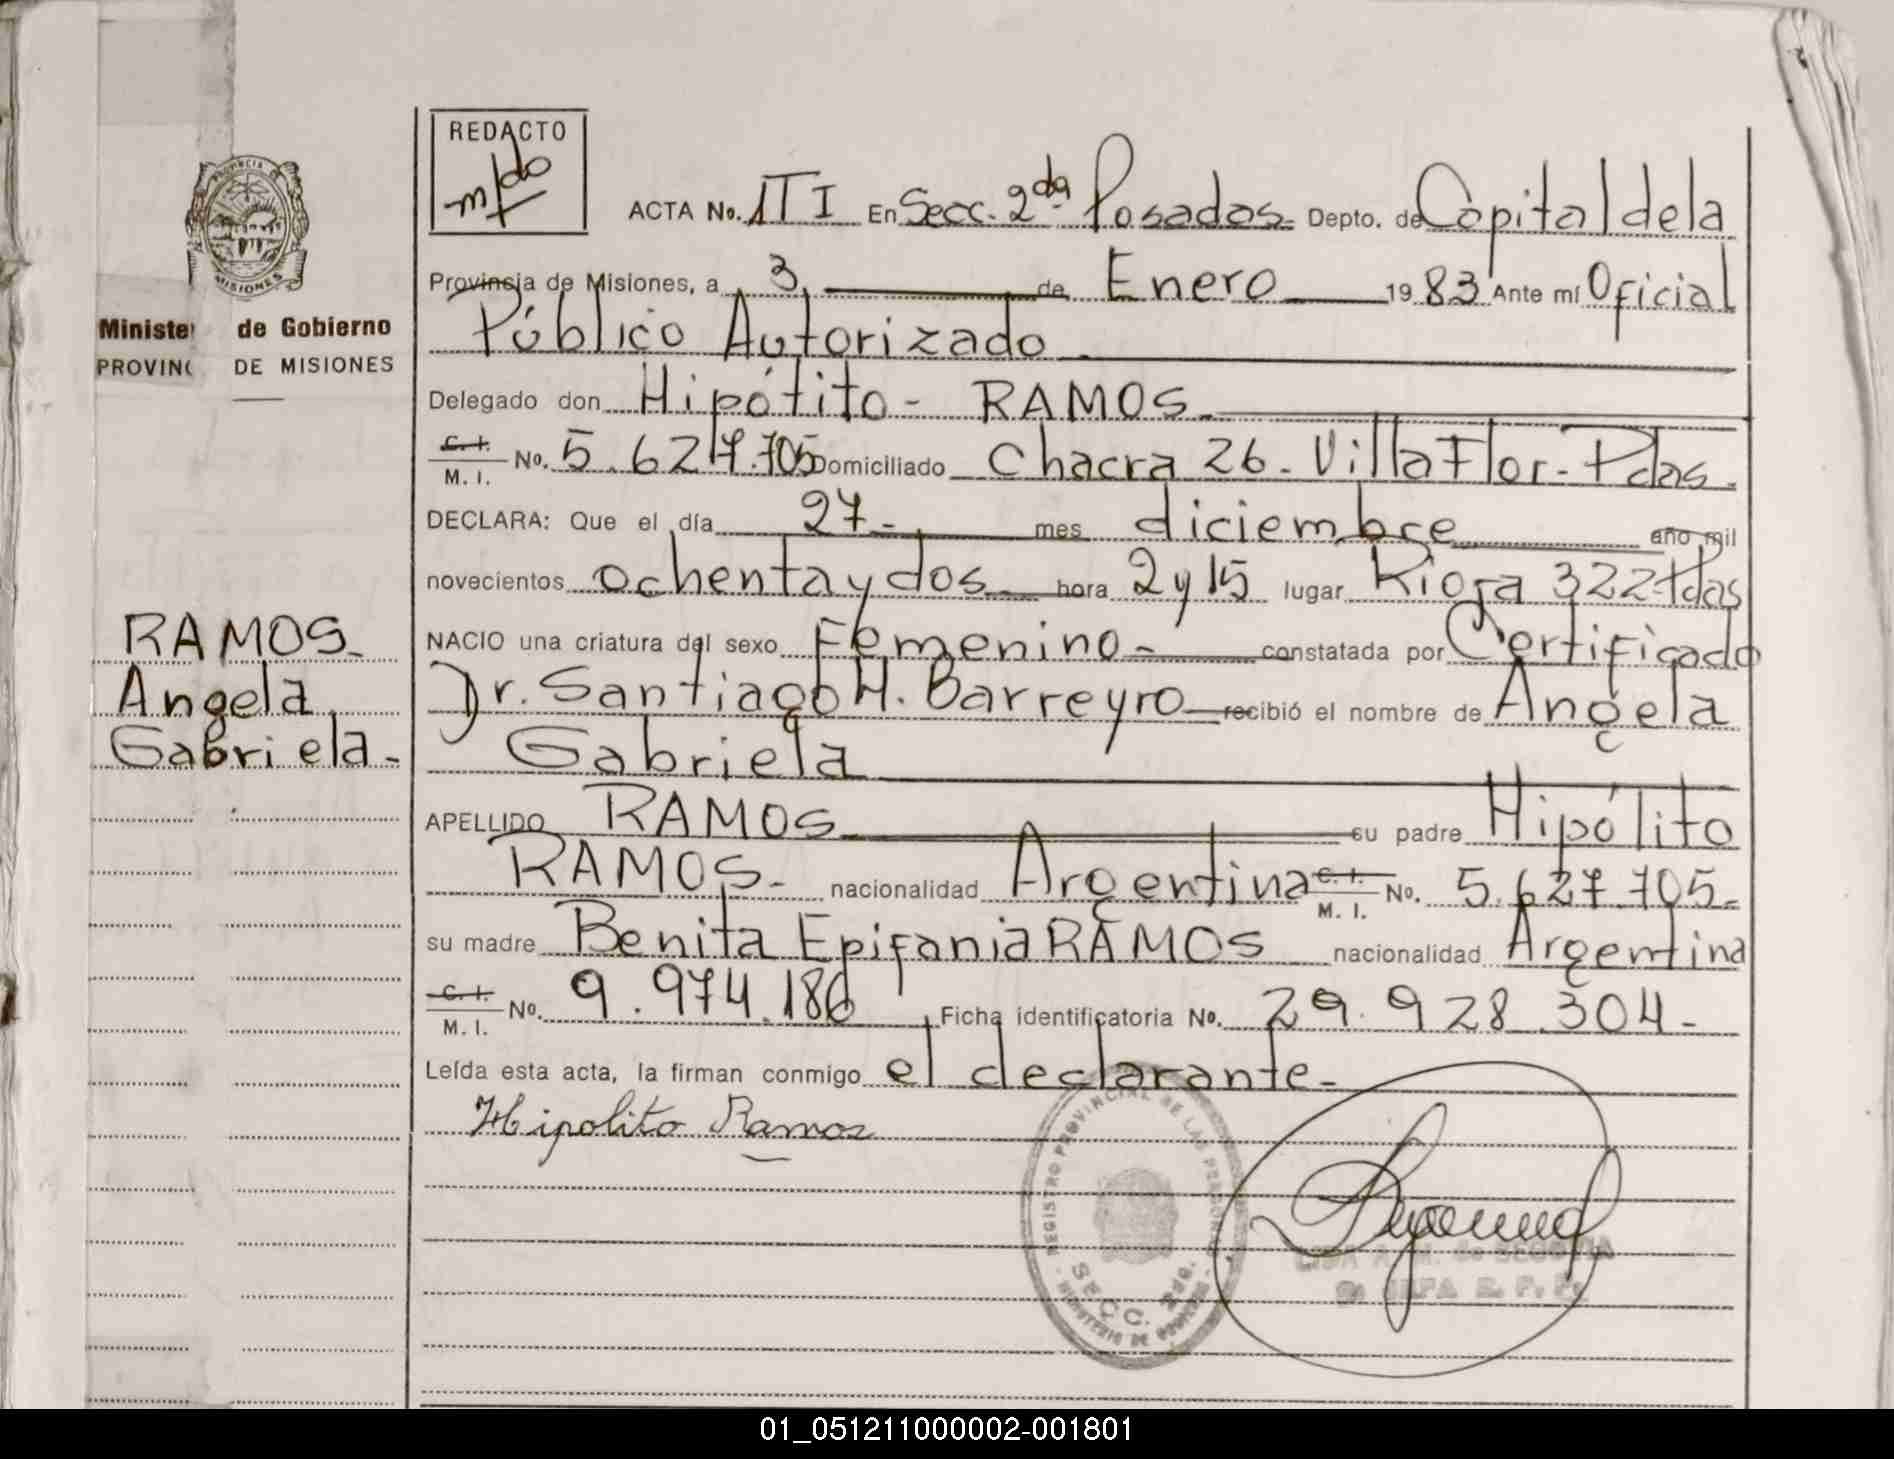 REDACTO
m/do
ACTA No. 1T I En Secc. 2da Posadas. Depto. de Capital de la
Provincia de Misiones, a 3 de Enero 19 83 Ante mí Oficial
Público Autorizado
Ministe de Gobierno
PROVINC DE MISIONES
PROVINCIA
MISIONES
Delegado don Hipótito - RAMOS.
C. I. M. I. No. 5.627.705 Domiciliado Chacra 26. Villa Flor - Pdas.
DECLARA: Que el día 27 - mes diciembre año mil
novecientos ochenta y dos hora 2 y 15 lugar Rioja 322 - Pdas
NACIO una criatura del sexo Femenino - constatada por Certificado
Dr. Santiago H. Barreyro recibió el nombre de Angela
Gabriela
RAMOS.
Angela
Gabriela -
APELLIDO RAMOS su padre Hipólito
RAMOS. - nacionalidad Argentina C. I. M. I. No. 5.627.705.-
su madre Benita Epifania RAMOS nacionalidad Argentina
C. I. M. I. No. 9.974.186 Ficha identificatoria No. 29.928.304 -
Leída esta acta, la firman conmigo el declarante -
Hipolito Ramos
REGISTRO PROVINCIAL DE LAS PERSONAS
SECC. 2da.
MINISTERIO DE GOBIERNO
de SEGOVIA
01_051211000002-001801